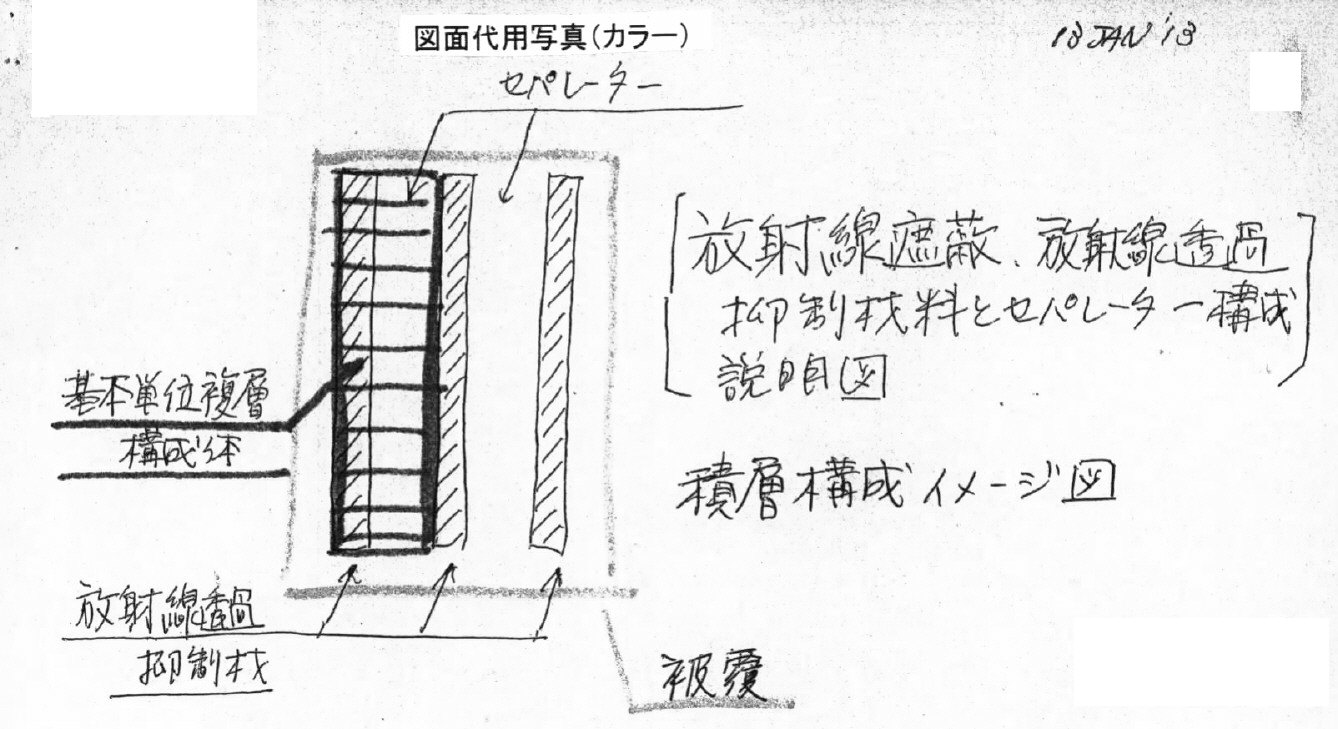 図面代用写真(カラー)
13 JAN '13
セパレーター
放射線遮蔽、放射線透過
抑制材料とセパレーター構成
説明図
基本単位複層
構成体
積層構成イメージ図
放射線透過
抑制材
被覆